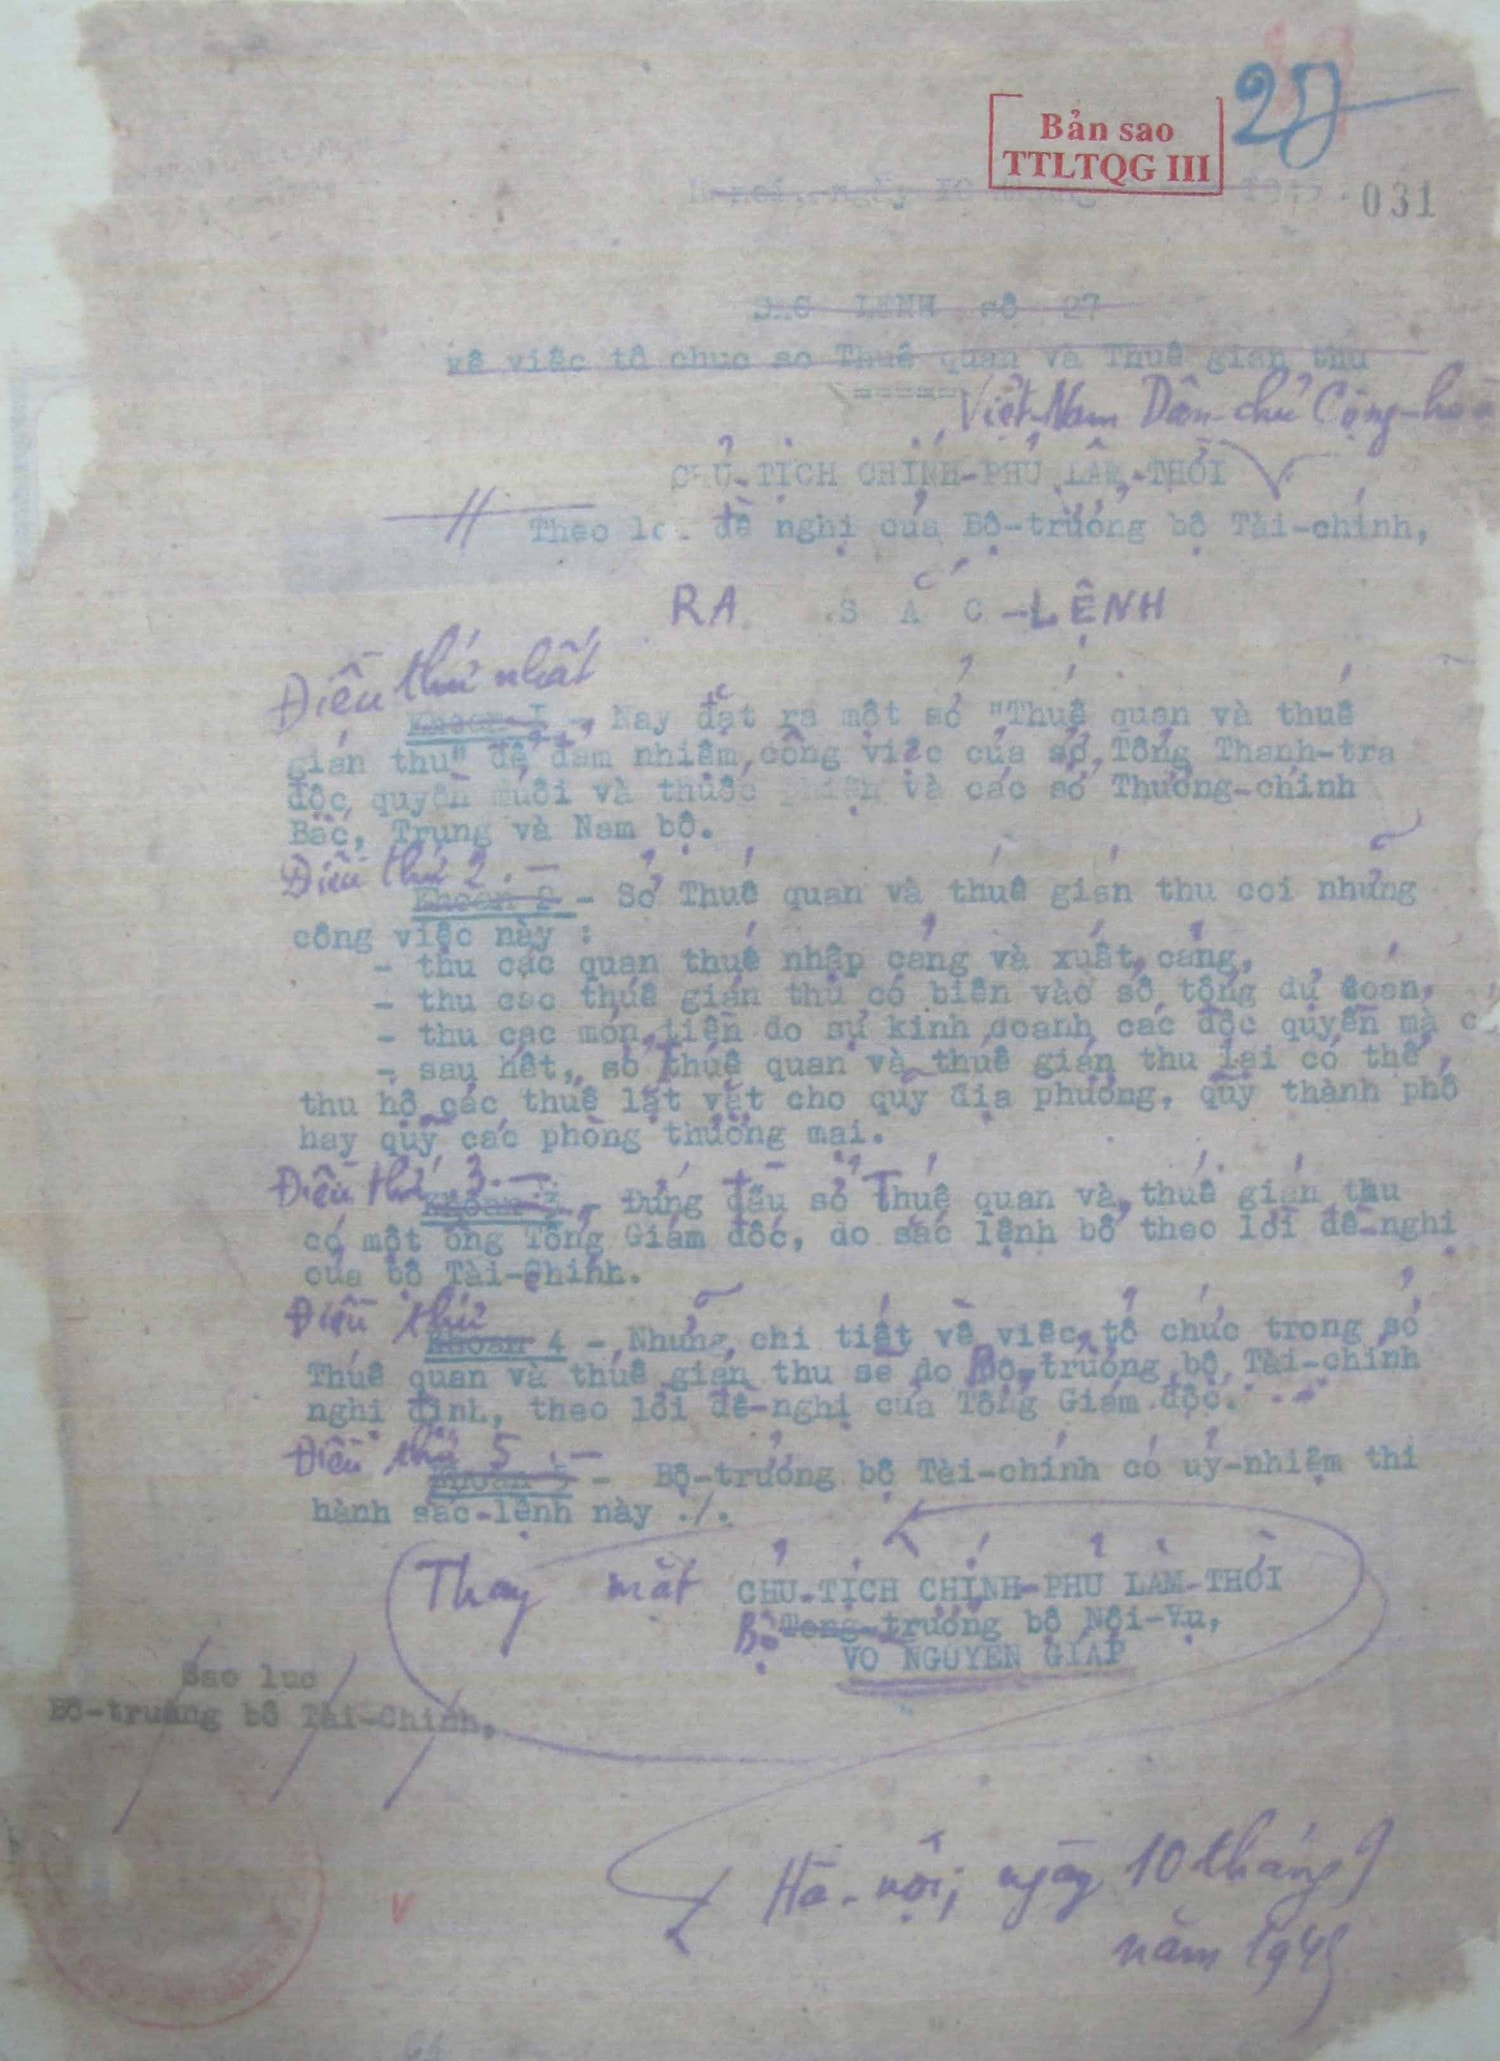 Bản sao
TTLTQG III
27
031
SẮC LỆNH số 27
về việc tổ chức sở Thuế quan và Thuế gián thu
Việt-Nam Dân-chủ Cộng-hoà
CHỦ-TỊCH CHÍNH-PHỦ LÂM-THỜI
Theo lời đề nghị của Bộ-trưởng bộ Tài-chính,
RA SẮC-LỆNH
Điều thứ nhất
Khoản I - Nay đặt ra một sở "Thuế quan và thuế
gián thu" để đảm nhiệm công việc của sở Tổng Thanh-tra
độc quyền muối và thuốc phiện và các sở Thương-chính
Bắc, Trung và Nam bộ.
Điều thứ 2.-
Khoản 2 - Sở Thuế quan và thuế gián thu coi những
công việc này :
- thu các quan thuế nhập cảng và xuất cảng,
- thu các thuế gián thu có biên vào sổ tổng dự toán,
- thu các món tiền do sự kinh doanh các độc quyền mà c
- sau hết, sở thuế quan và thuế gián thu lại có thể
thu hộ các thuế lặt vặt cho quỹ địa phương, quỹ thành phố
hay quỹ các phòng thương mại.
Điều thứ 3.-
Khoản 3 - Đứng đầu sở Thuế quan và thuế gián thu
có một ông Tổng Giám đốc, do sắc lệnh bổ theo lời đề-nghị
của bộ Tài-Chính.
Điều thứ
Khoản 4 - Những chi tiết về việc tổ chức trong sở
Thuế quan và thuế gián thu sẽ do Bộ-trưởng bộ Tài-chính
nghị định, theo lời đề-nghị của Tổng Giám đốc.
Điều thứ 5.-
Khoản 5 - Bộ-trưởng bộ Tài-chính có uỷ-nhiệm thi
hành sắc-lệnh này ./.
Thay mặt CHỦ-TỊCH CHÍNH-PHỦ LÂM-THỜI
Bộ Tong-trưởng bộ Nội-Vụ,
VO NGUYEN GIAP
Sao luc
Bộ-trưởng bộ Tài-Chính.
Hà-nội, ngày 10 tháng 9
năm 1945